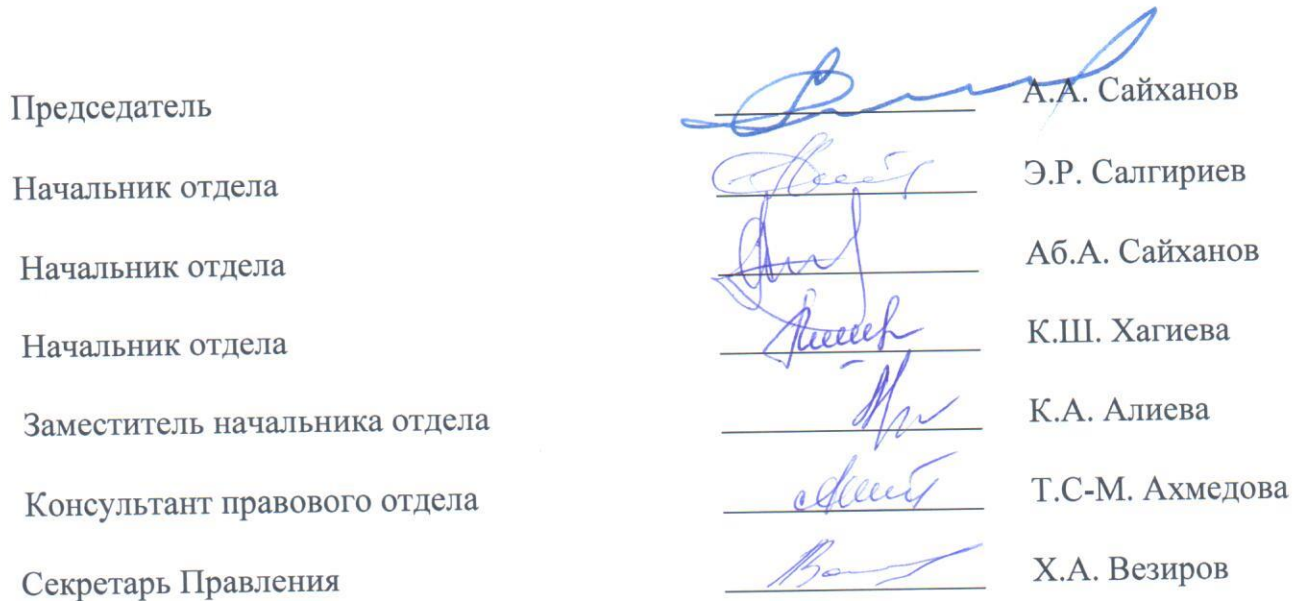 Председатель А.А. Сайханов
Начальник отдела Э.Р. Салгириев
Начальник отдела Аб.А. Сайханов
Начальник отдела К.Ш. Хагиева
Заместитель начальника отдела К.А. Алиева
Консультант правового отдела Т.С-М. Ахмедова
Секретарь Правления Х.А. Везиров